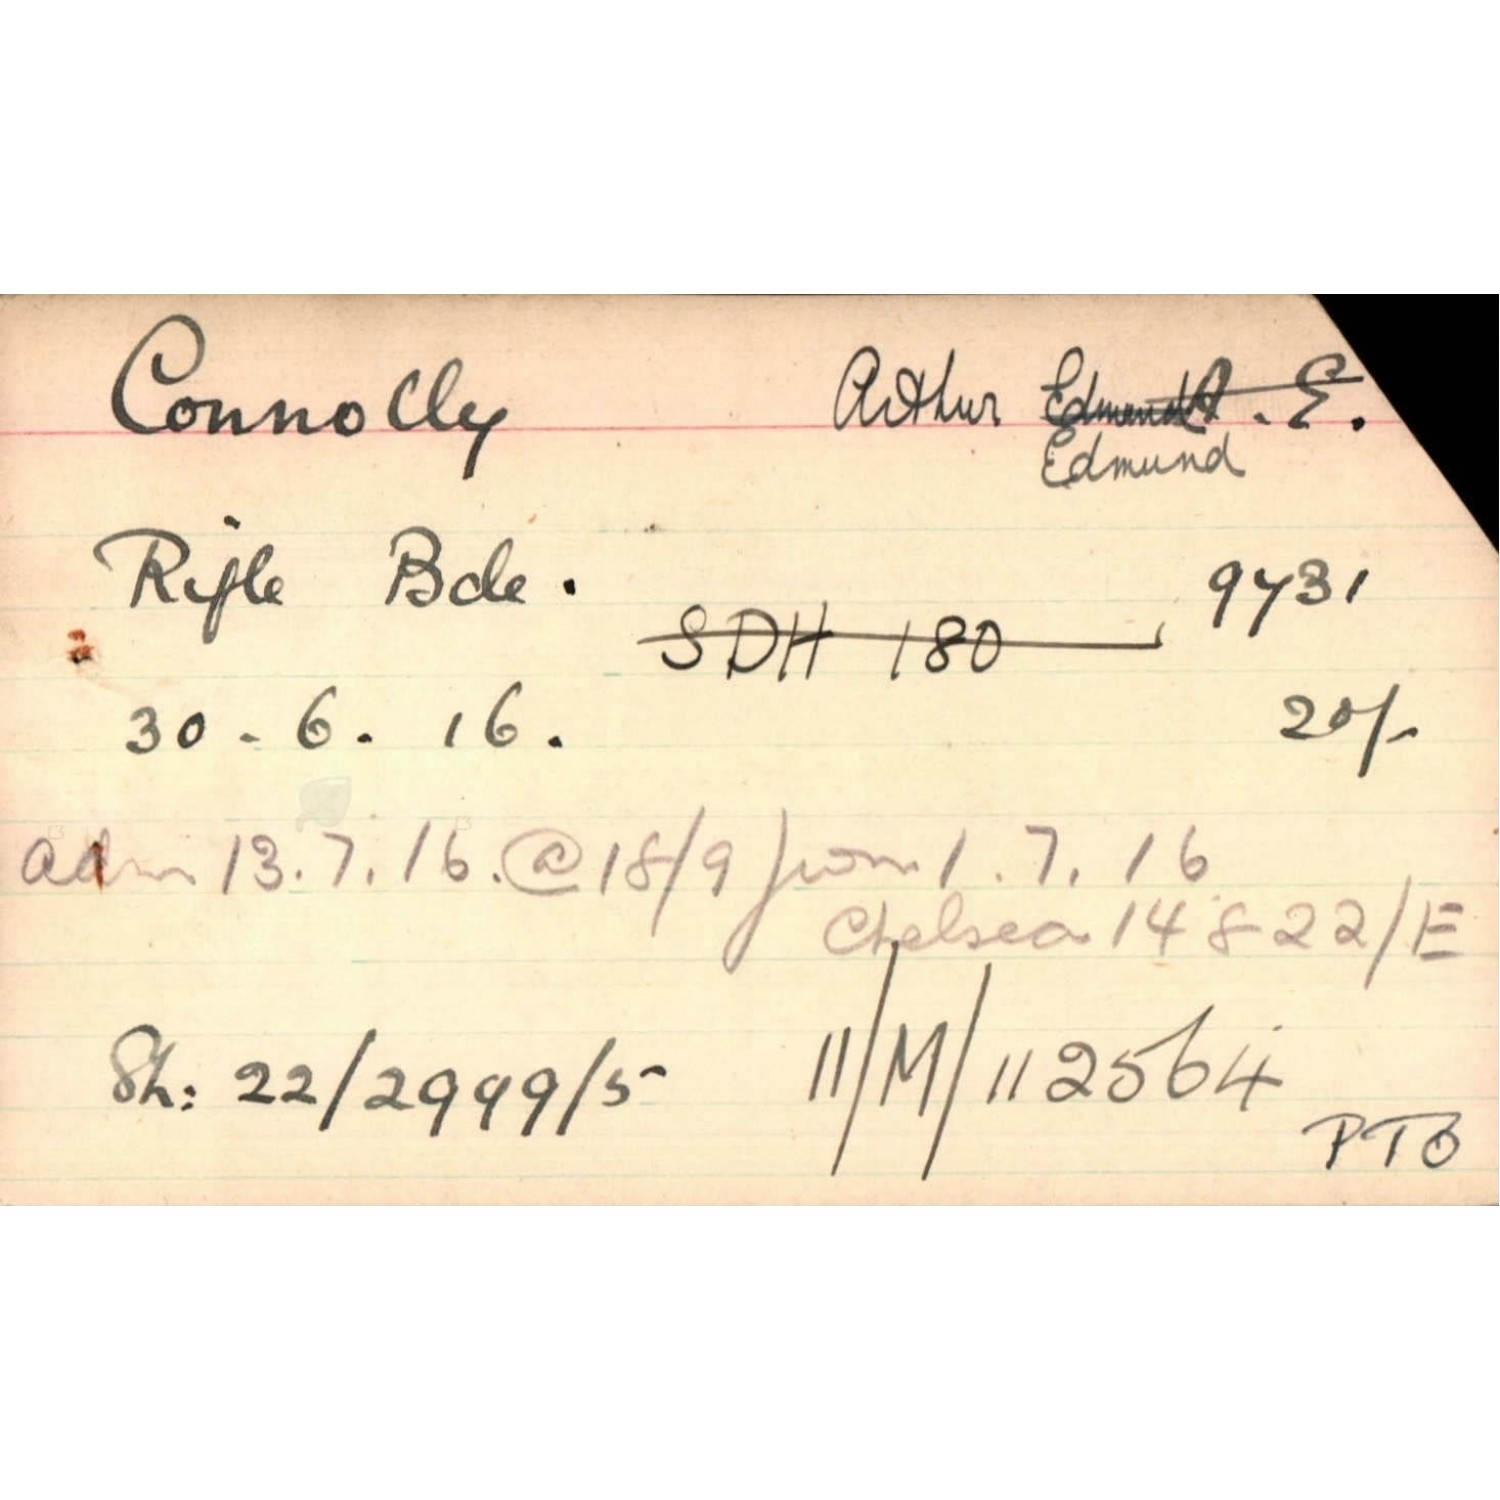 Connolly Arthur Edmund A. E.
Edmund
Rifle Bde. 9731
SDH 180
30-6.16. 20/-
adm 13.7.16. @ 18/9 from 1.7.16
Chelsea 14 8 22/E
Sh: 22/2999/5 11/M/112564
PTO